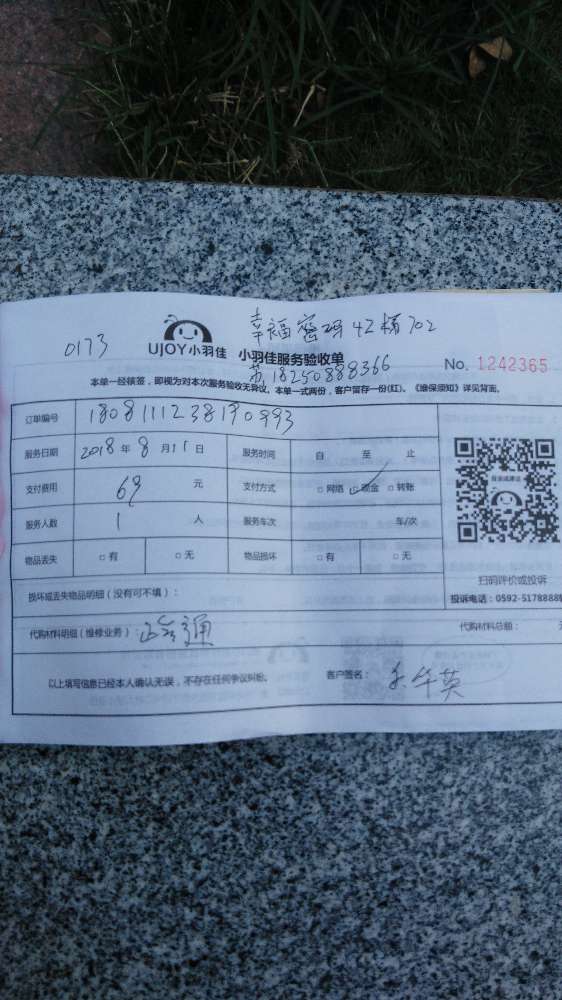 幸福密码42梯702
0173
UJOY小羽佳 小羽佳服务验收单
苏,18250888366
No. 1242365
本单一经核签,即视为对本次服务验收无异议。本单一式两份,客户留存一份(红)。《维保须知》详见背面。
订单编号 1808111238190993
服务日期 2018年8月11日 服务时间 自 至 止
支付费用 69 元 支付方式 □网络 ☑现金 □转账
服务人数 1 人 服务车次 车/次
物品丢失 □有 □无 物品损坏 □有 □无
扫码评价或投诉
损坏或丢失物品明细(没有可不填):
投诉电话:0592-5178888
代购材料明细(维修业务): 通 代购材料总额:
以上填写信息已经本人确认无误,不存在任何争议纠纷。 客户签名: 华英